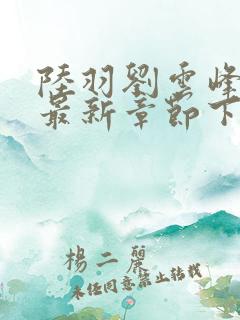 陸羽劉雲峰
最新章節下
楊二麗
未經同意禁止轉載